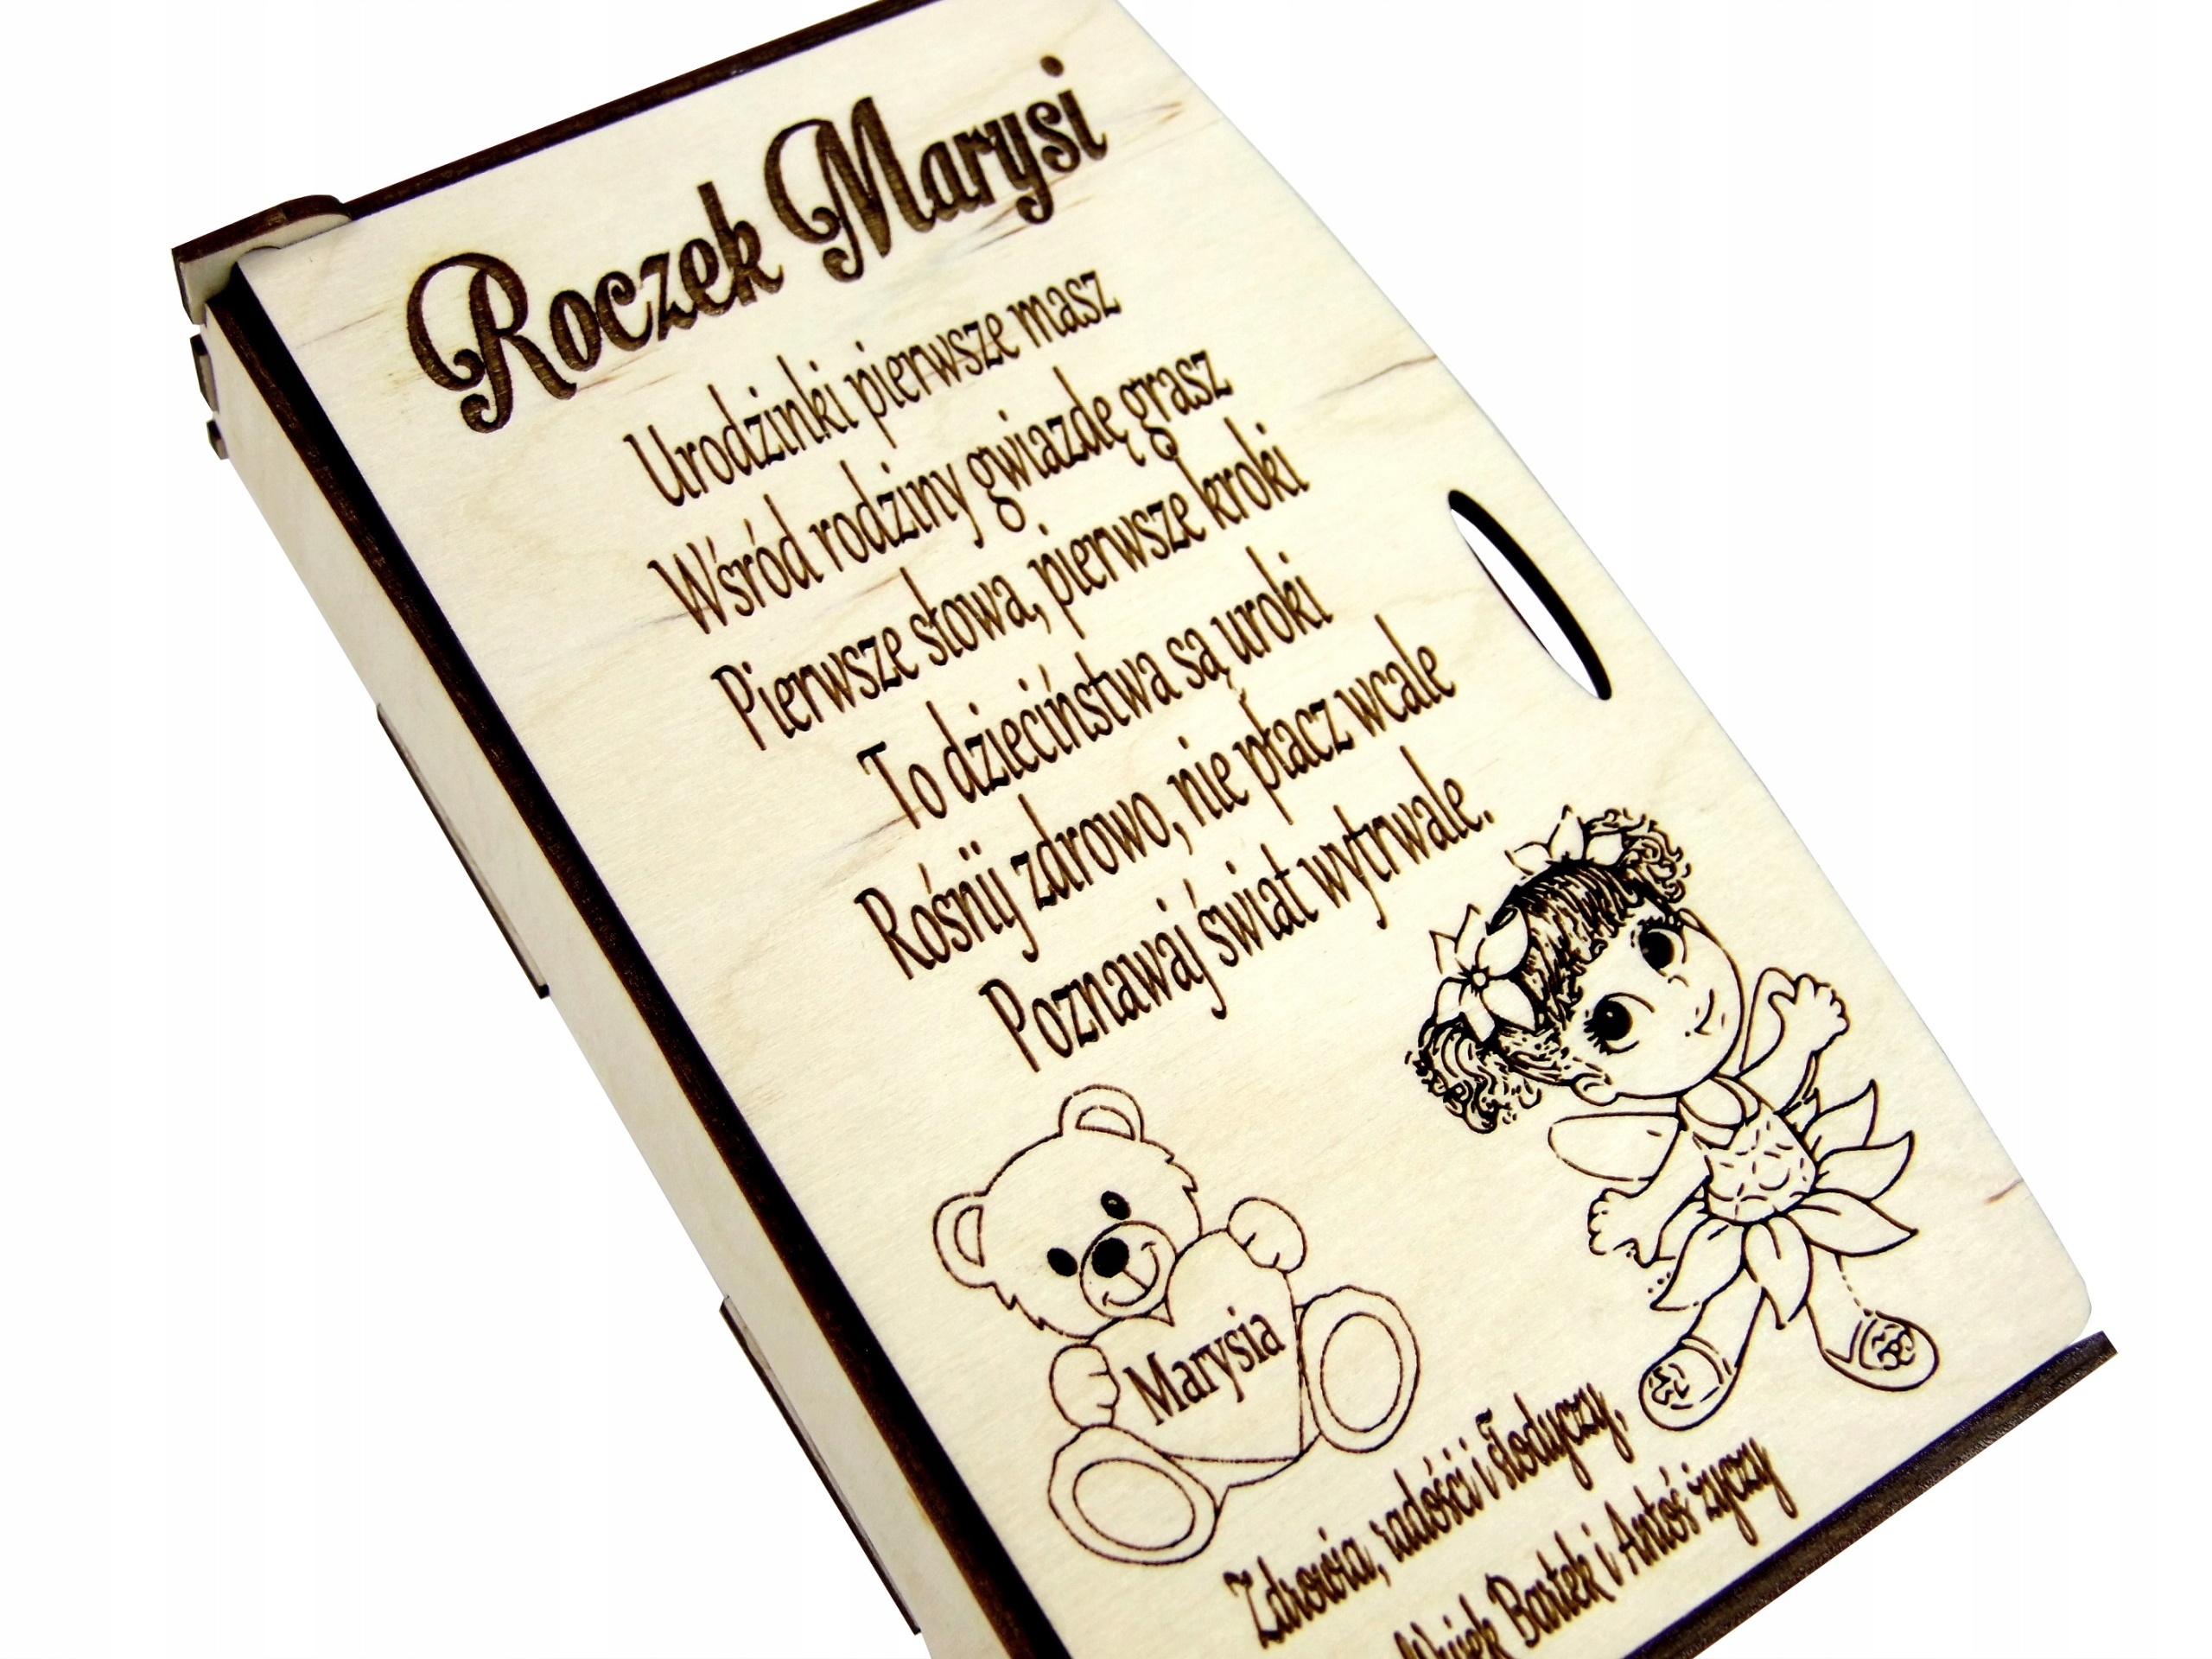 Roczek Marysi
Urodzinki pierwsze masz
Wśród rodziny gwiazdę grasz
Pierwsze słowa, pierwsze kroki
To dzieciństwa są uroki
Rośnij zdrowo, nie płacz wcale
Poznawaj świat wytrwale.
Marysia
Zdrowia, radości i słodyczy,
Wujek Bartek i Antoś życzy